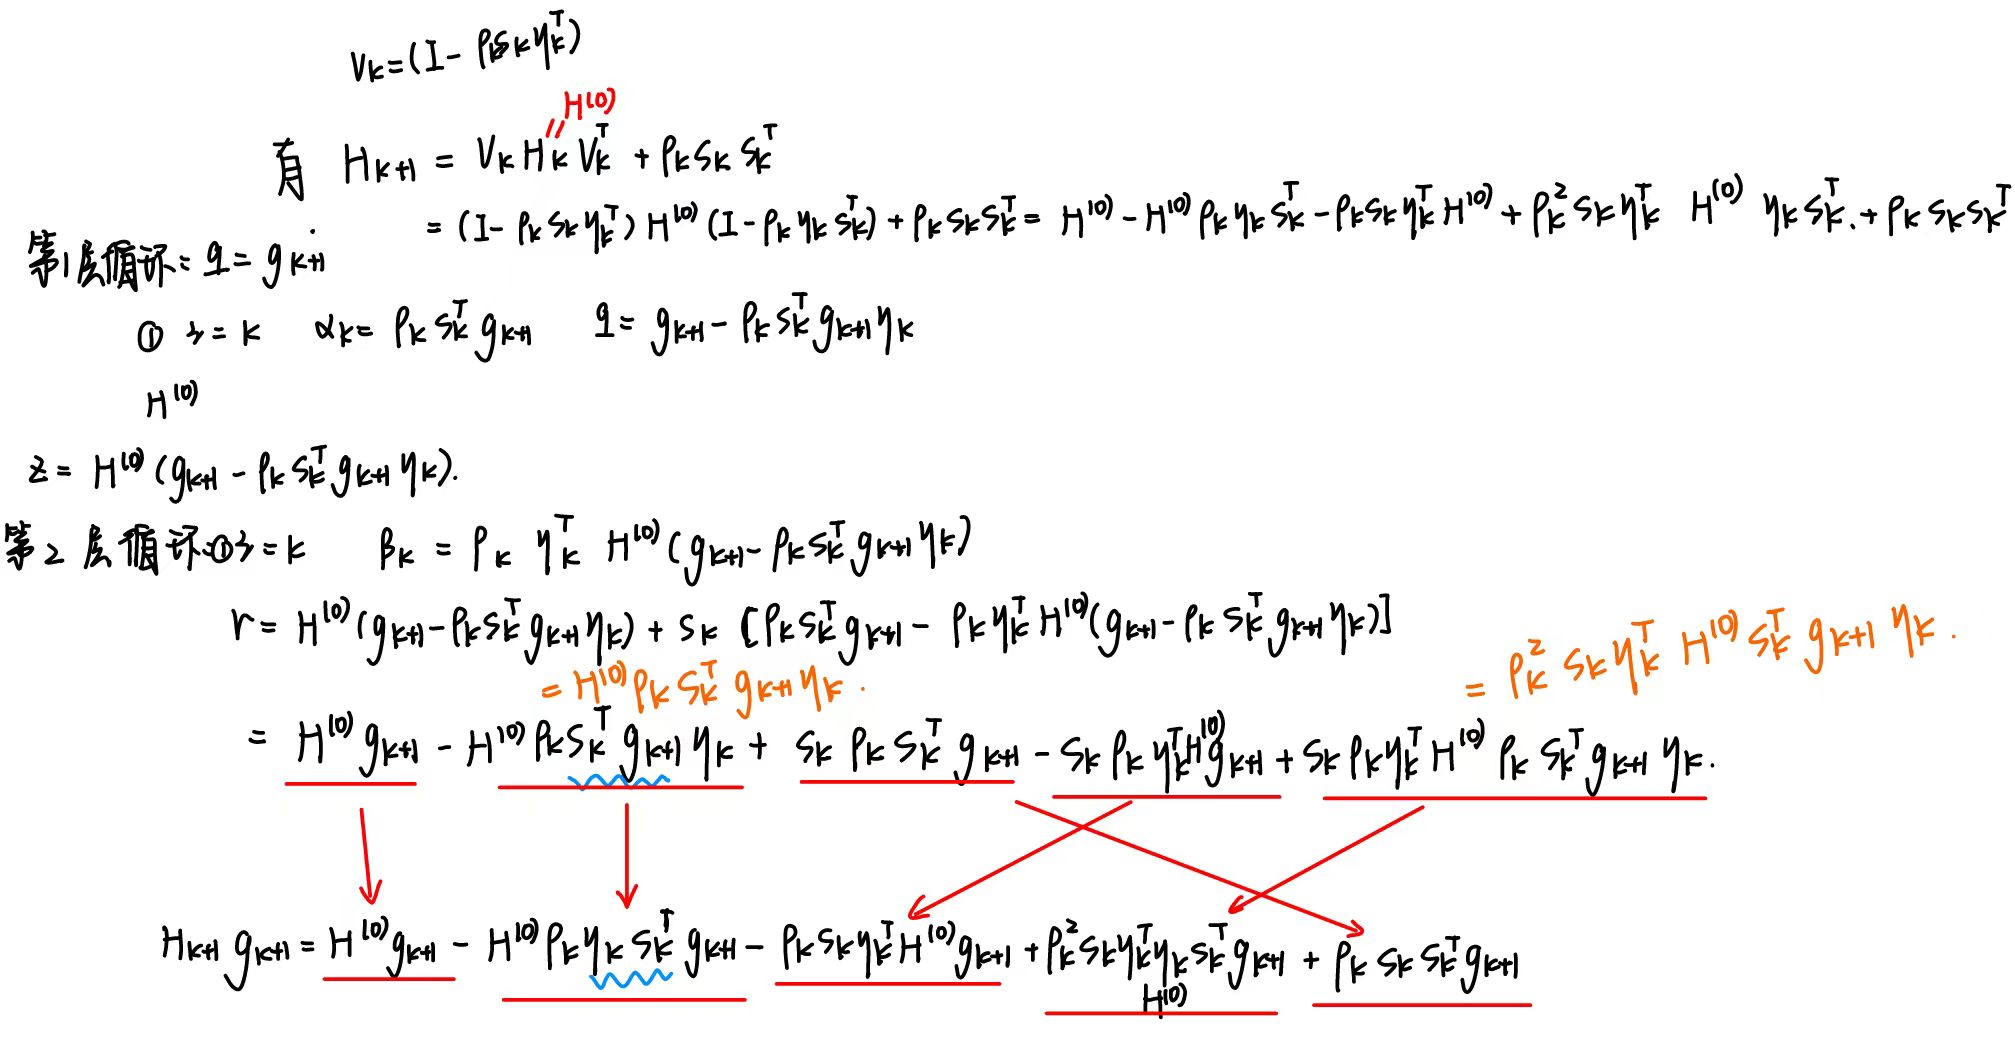 V_k=(I-ρ_k s_k η_k^T)
H^(0)
有 H_{k+1} = V_k H_k V_k^T + ρ_k s_k s_k^T
= (I-ρ_k s_k η_k^T) H^(0) (I-ρ_k η_k s_k^T) + ρ_k s_k s_k^T = H^(0) - H^(0) ρ_k η_k s_k^T - ρ_k s_k η_k^T H^(0) + ρ_k^2 s_k η_k^T H^(0) η_k s_k^T + ρ_k s_k s_k^T
第1层循环: q = g_{k+1}
① i=k α_k = ρ_k s_k^T g_{k+1} q = g_{k+1} - ρ_k s_k^T g_{k+1} η_k
H^(0)
z = H^(0) (g_{k+1} - ρ_k s_k^T g_{k+1} η_k).
第2层循环:①i=k β_k = ρ_k η_k^T H^(0) (g_{k+1} - ρ_k s_k^T g_{k+1} η_k)
r = H^(0) (g_{k+1} - ρ_k s_k^T g_{k+1} η_k) + s_k [ρ_k s_k^T g_{k+1} - ρ_k η_k^T H^(0) (g_{k+1} - ρ_k s_k^T g_{k+1} η_k)]
= H^(0) ρ_k s_k^T g_{k+1} η_k.
= ρ_k^2 s_k η_k^T H^(0) s_k^T g_{k+1} η_k.
= H^(0) g_{k+1} - H^(0) ρ_k s_k^T g_{k+1} η_k + s_k ρ_k s_k^T g_{k+1} - s_k ρ_k η_k^T H^(0) g_{k+1} + s_k ρ_k η_k^T H^(0) ρ_k s_k^T g_{k+1} η_k.
H_{k+1} g_{k+1} = H^(0) g_{k+1} - H^(0) ρ_k η_k s_k^T g_{k+1} - ρ_k s_k η_k^T H^(0) g_{k+1} + ρ_k^2 s_k η_k^T η_k s_k^T g_{k+1} + ρ_k s_k s_k^T g_{k+1}
H^(0)